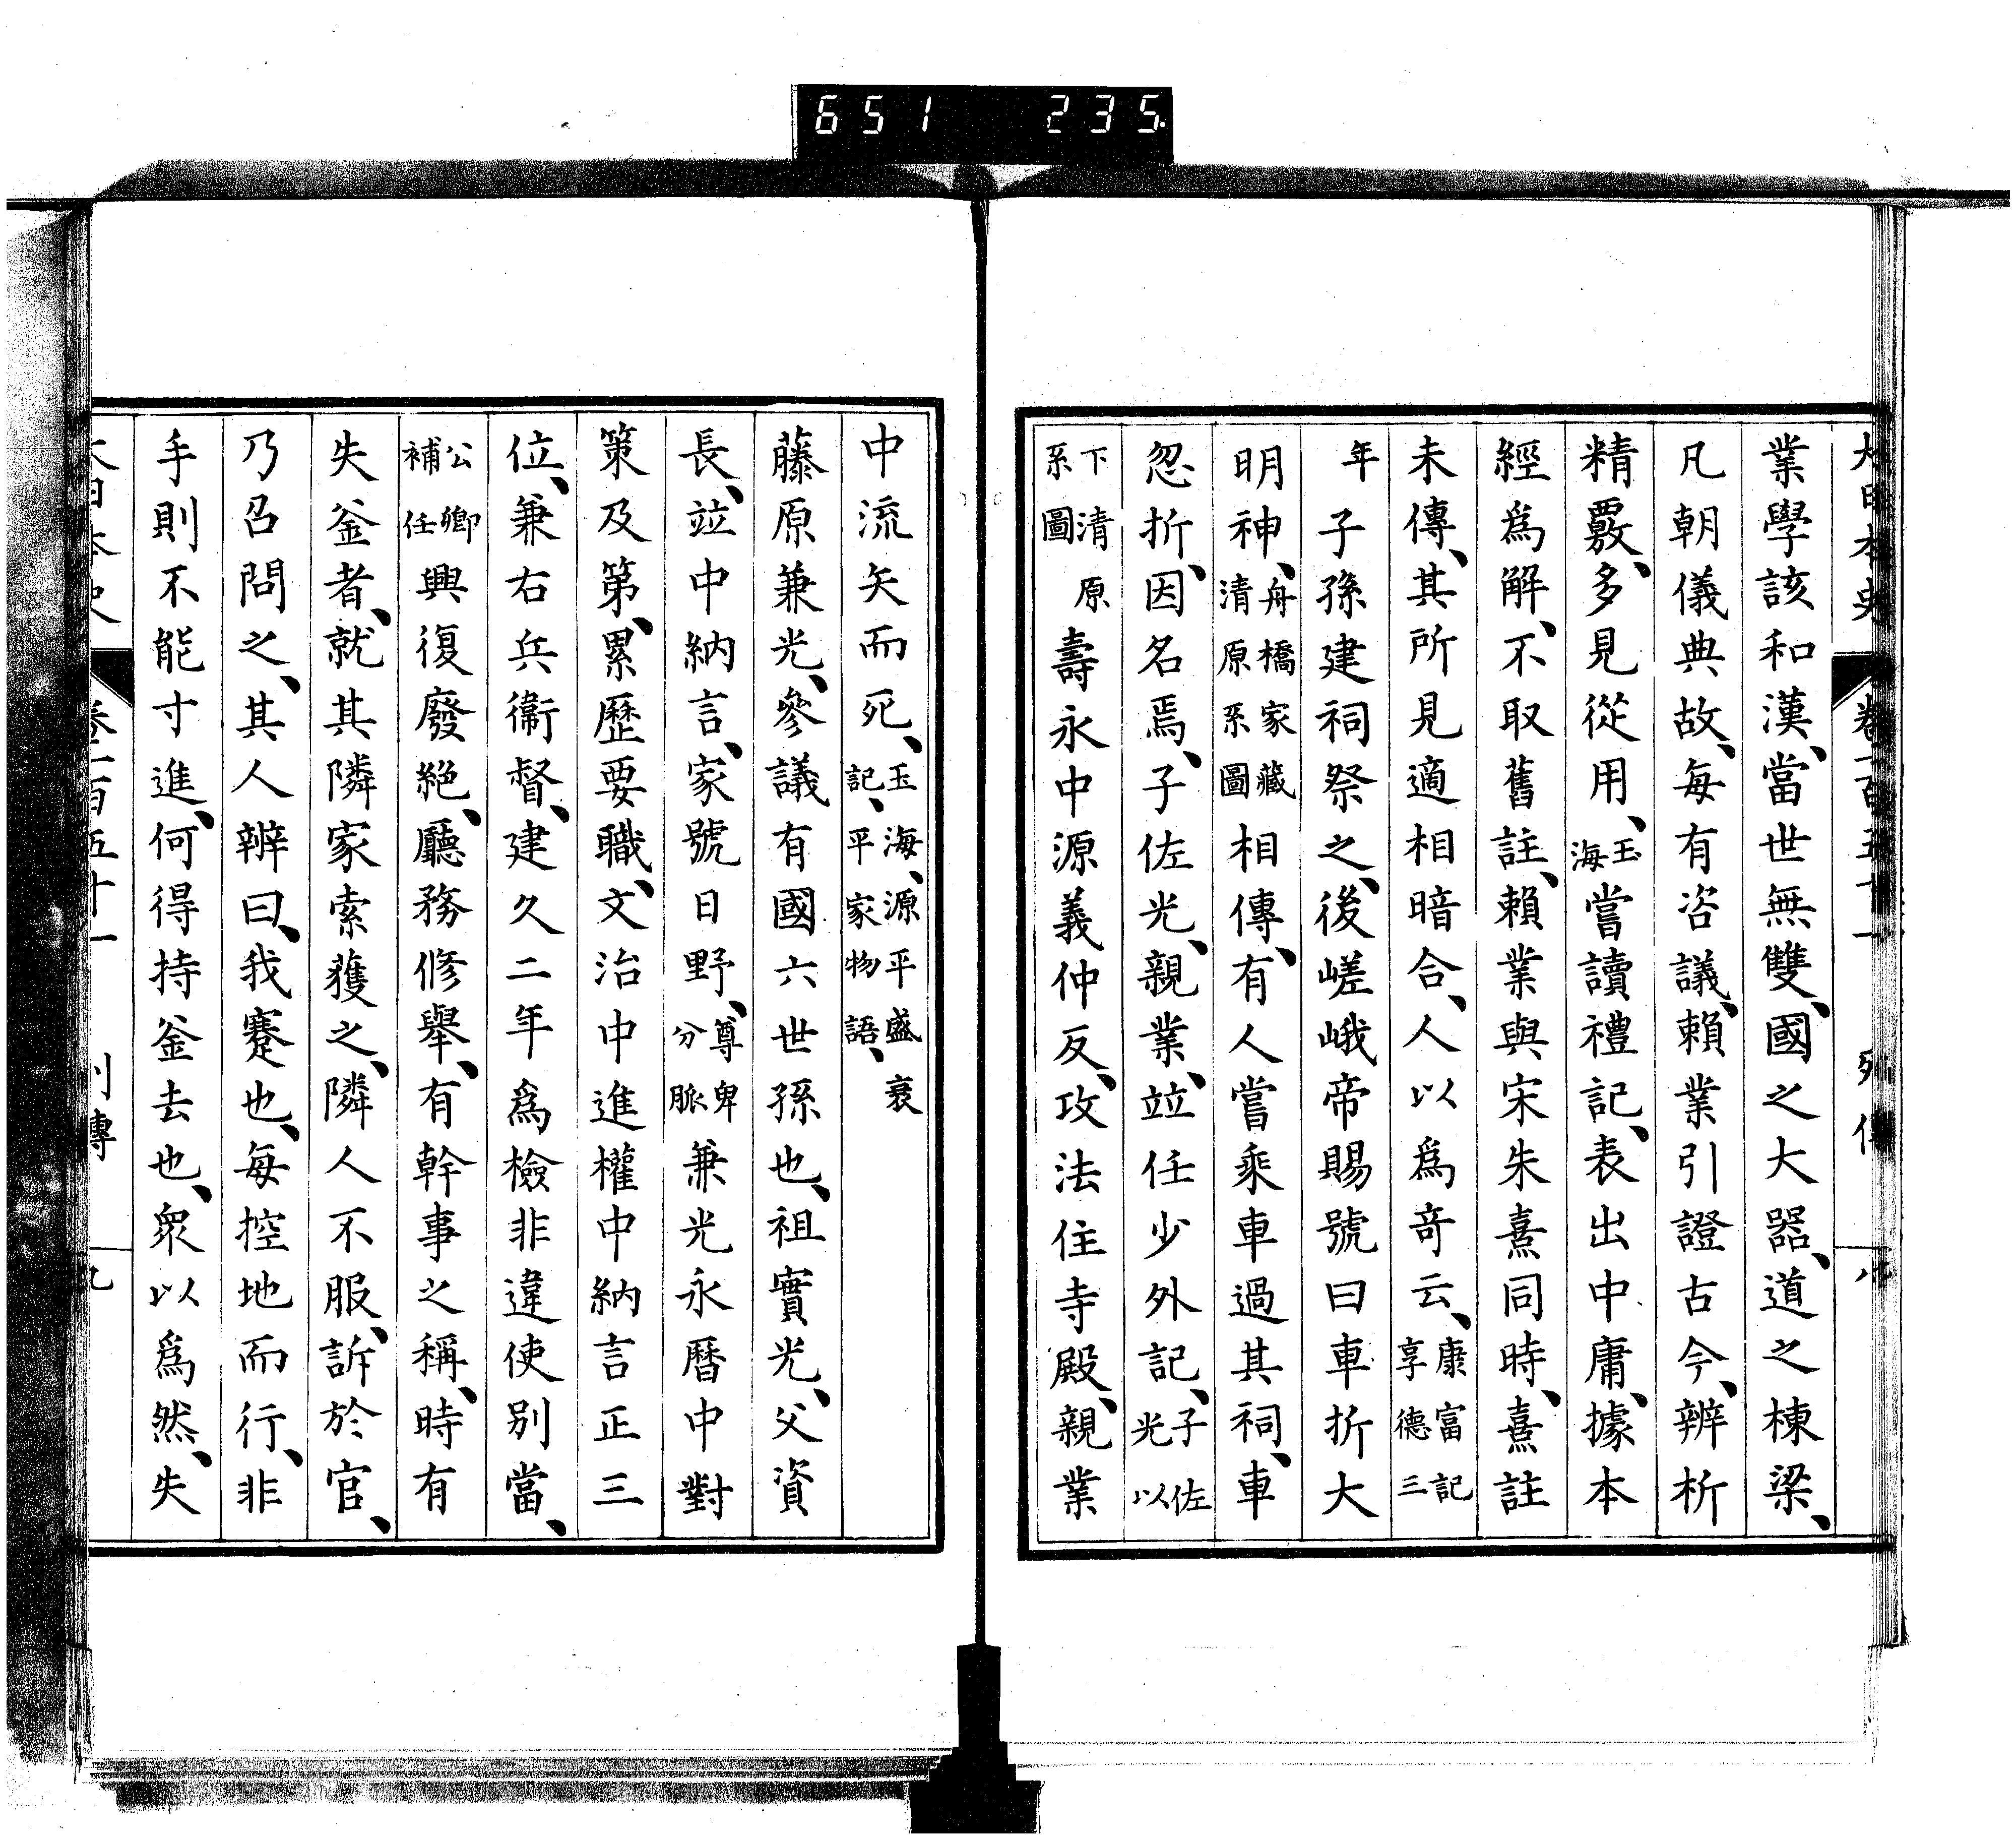 651 235
大日本史 卷一百五十一 列傳 八
業學該和漢、當世無雙、國之大器、道之棟梁、
凡朝儀典故、每有咨議、賴業引證古今、辨析
精覈、多見從用、玉海嘗讀禮記、表出中庸、據本
經爲解、不取舊註、賴業與宋朱熹同時、熹註
未傳、其所見適相暗合、人以爲奇云、康富記享德三
年子孫建祠祭之、後嵯峨帝賜號曰車折大
明神、舟橋家藏清原系圖相傳、有人嘗乘車過其祠、車
忽折、因名焉、子佐光、親業、竝任少外記、子佐光以
下清原系圖壽永中源義仲反、攻法住寺殿、親業
中流矢而死、玉海、源平盛衰記、平家物語、
藤原兼光、參議有國六世孫也、祖實光、父資
長、竝中納言、家號日野、尊卑分脈兼光永曆中對
策及第、累歷要職、文治中進權中納言正三
位、兼右兵衞督、建久二年爲檢非違使別當、
公卿補任興復廢絕、廳務修舉、有幹事之稱、時有
失釜者、就其隣家索獲之、隣人不服、訴於官、
乃召問之、其人辨曰、我蹇也、每控地而行、非
手則不能寸進、何得持釜去也、衆以爲然、失
大日本史 卷一百五十一 列傳 九